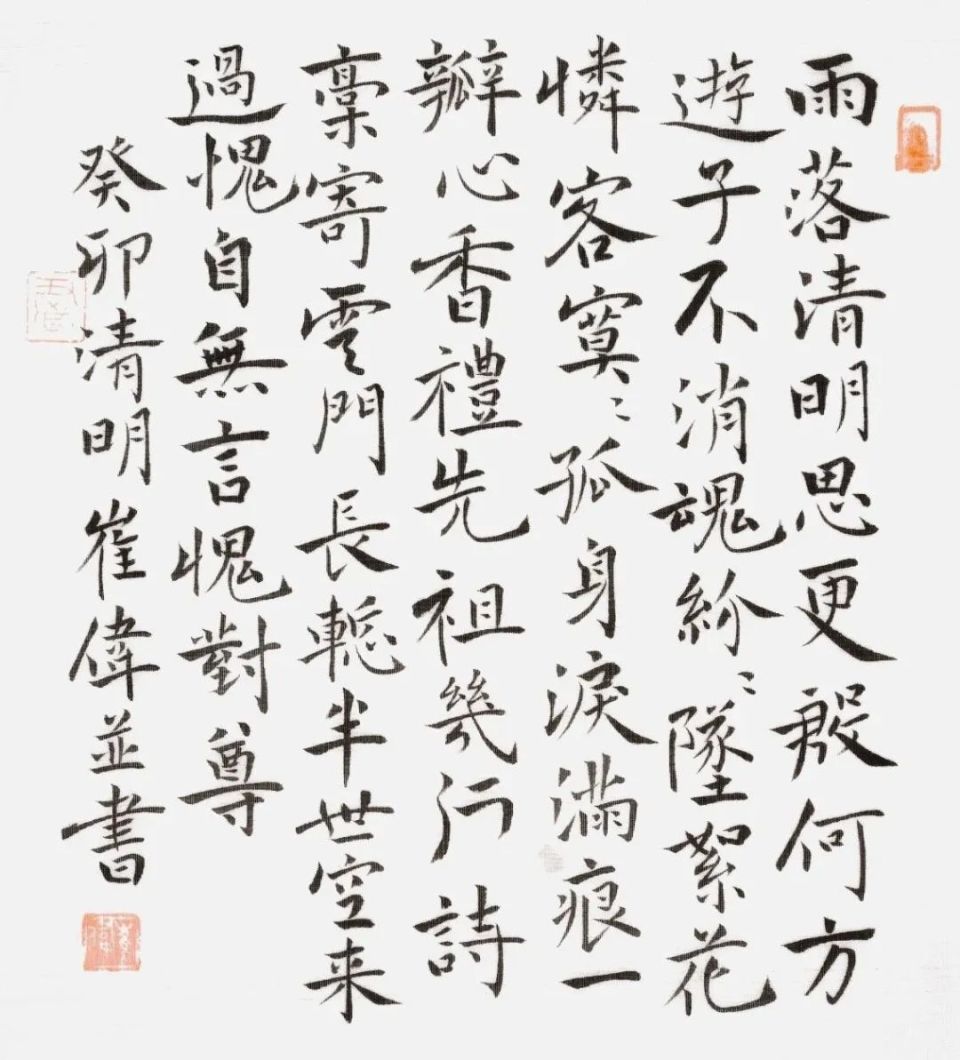 雨落清明思更殷何方
遊子不消魂紛〻墜絮花
憐客寞〻孤身淚滿痕一
瓣心香禮先祖幾行詩
稾寄雲門長轗半世空来
過愧自無言愧對尊
癸卯清明崔偉並書